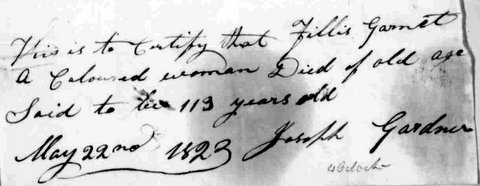 This is to Certify that Fillis Garnet
A Coloured woman Died of old age
Said to be 113 years old
May 22nd 1823 Joseph Gardner
4 Oclock